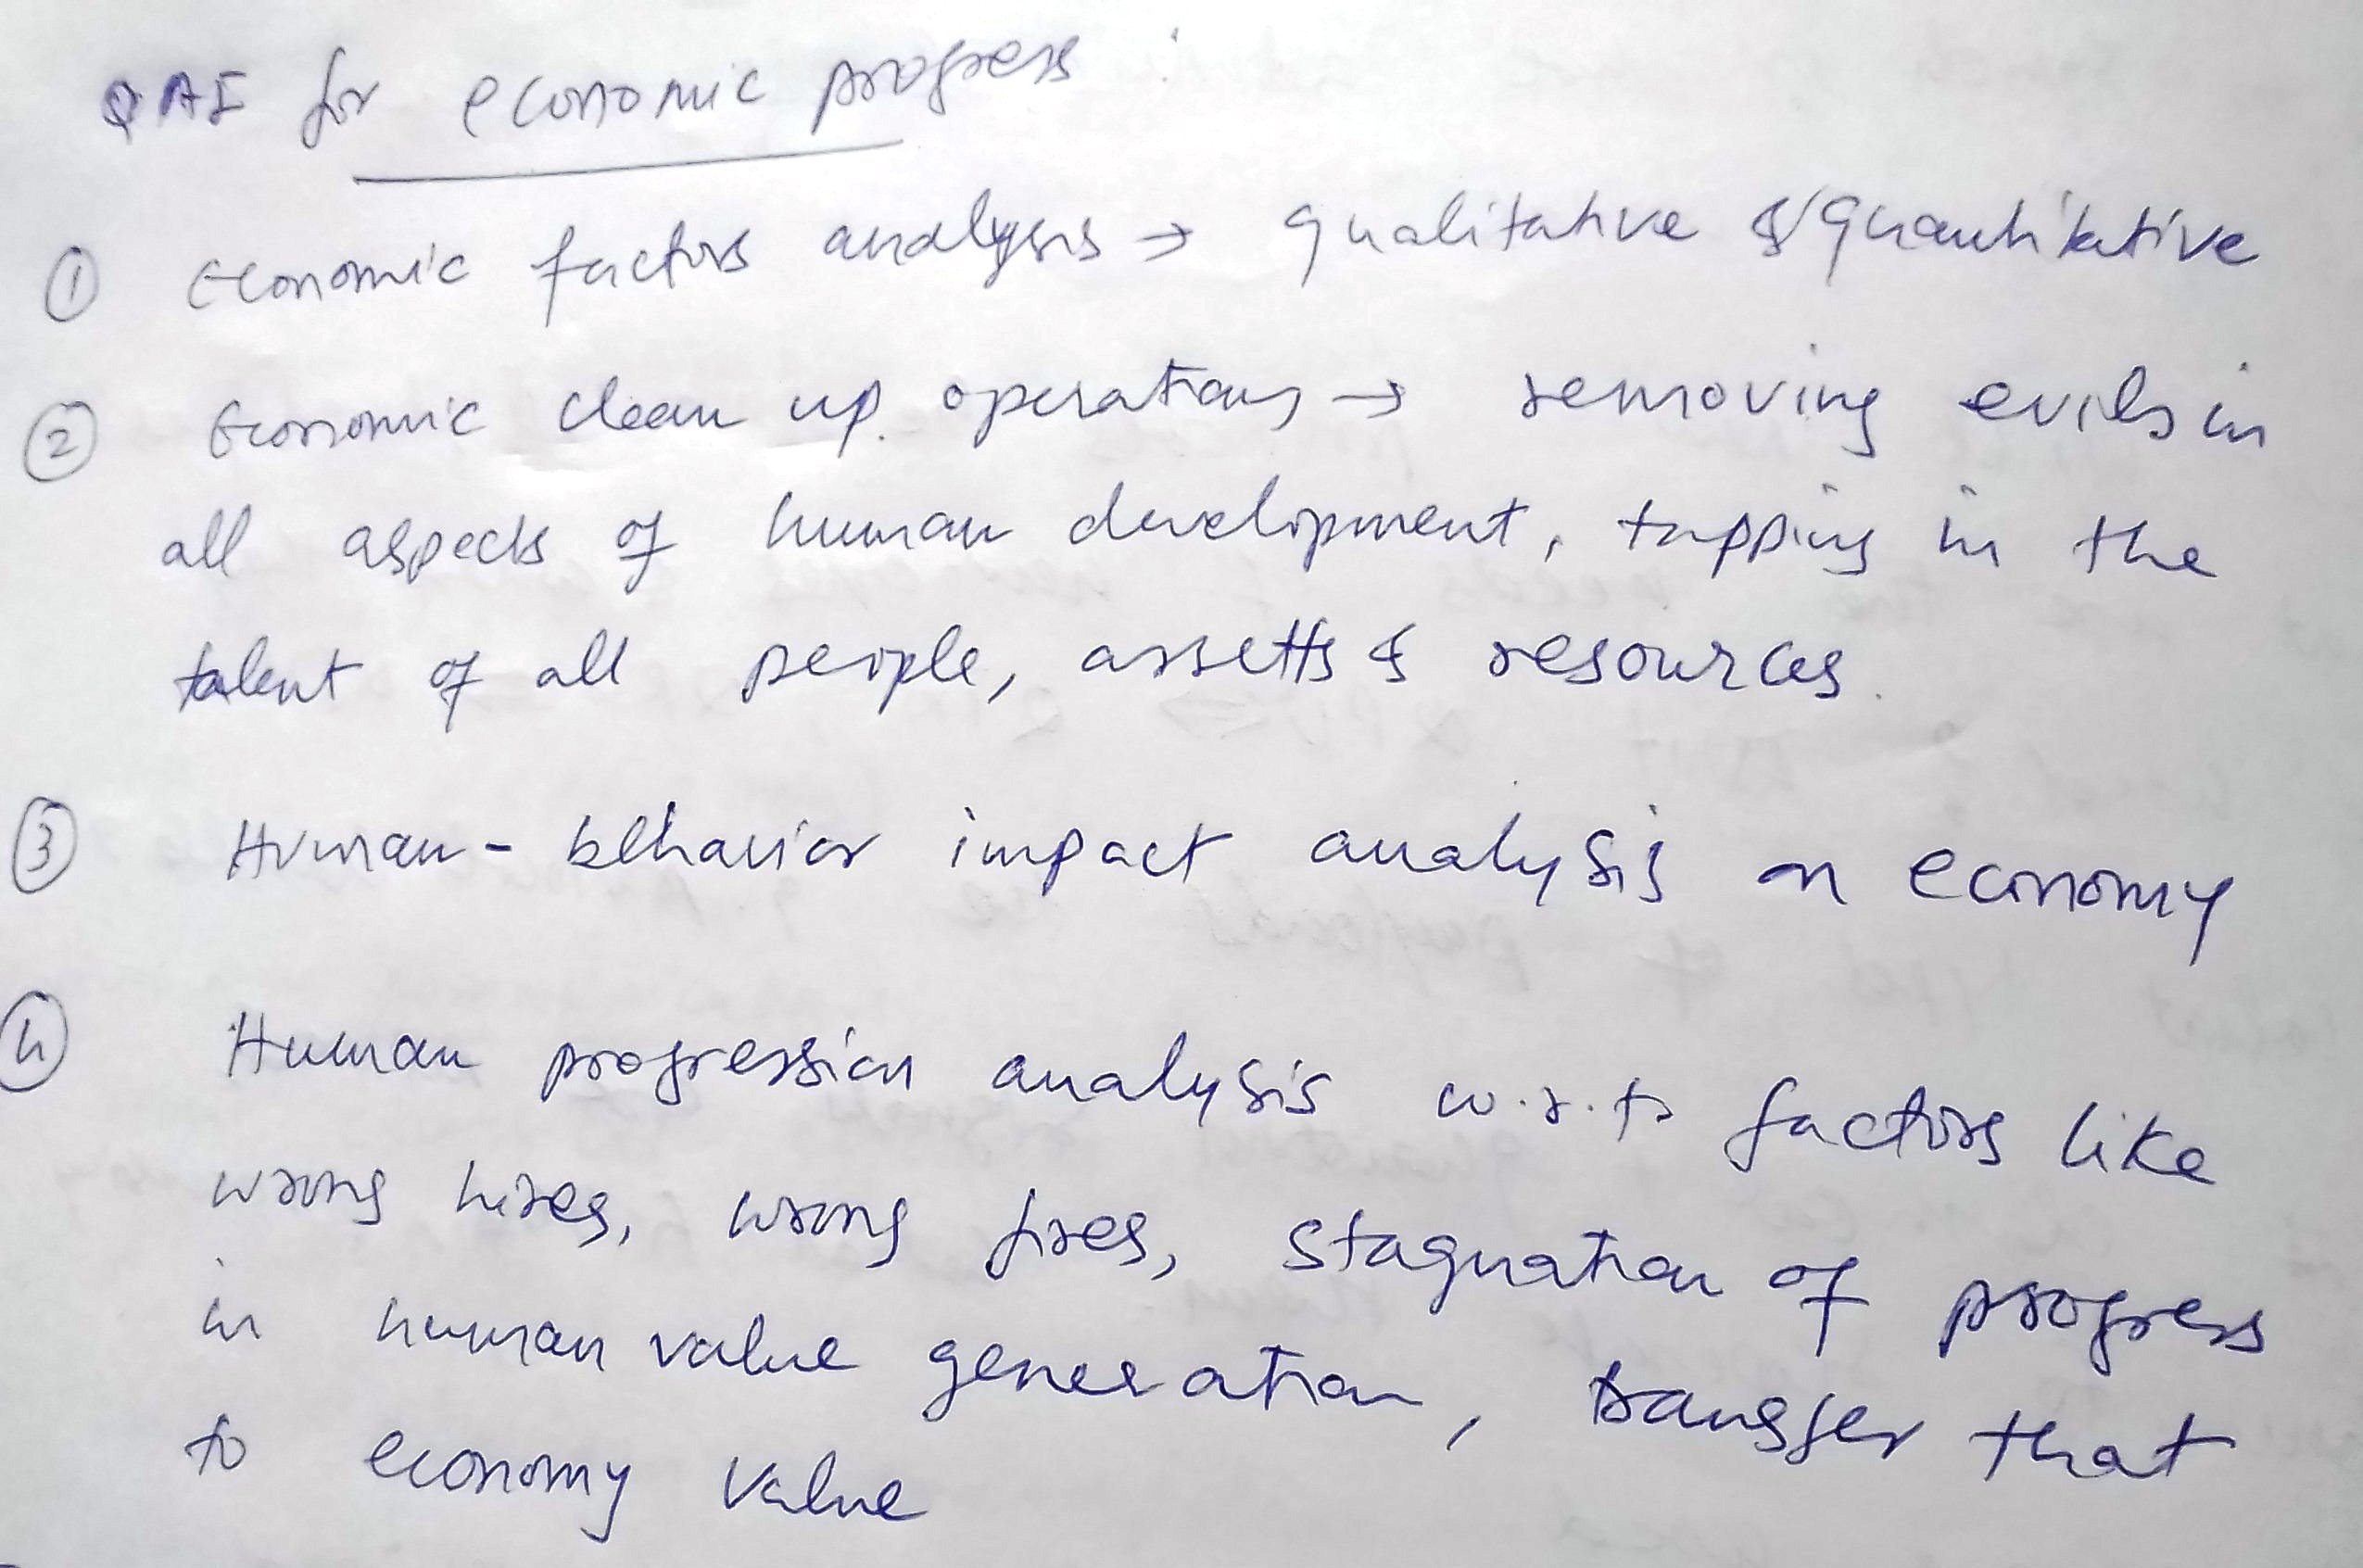 QAI for economic progress :
① Economic factors analysis → qualitative & quantitative
② Economic clean up operations → removing evils in
all aspects of human development, tapping in the
talent of all people, assetts & resources.
③ Human - behavior impact analysis on economy
④ Human progression analysis w.r.to factors like
wrong hires, wrong fires, stagnation of progress
in human value generation, transfer that
to economy value